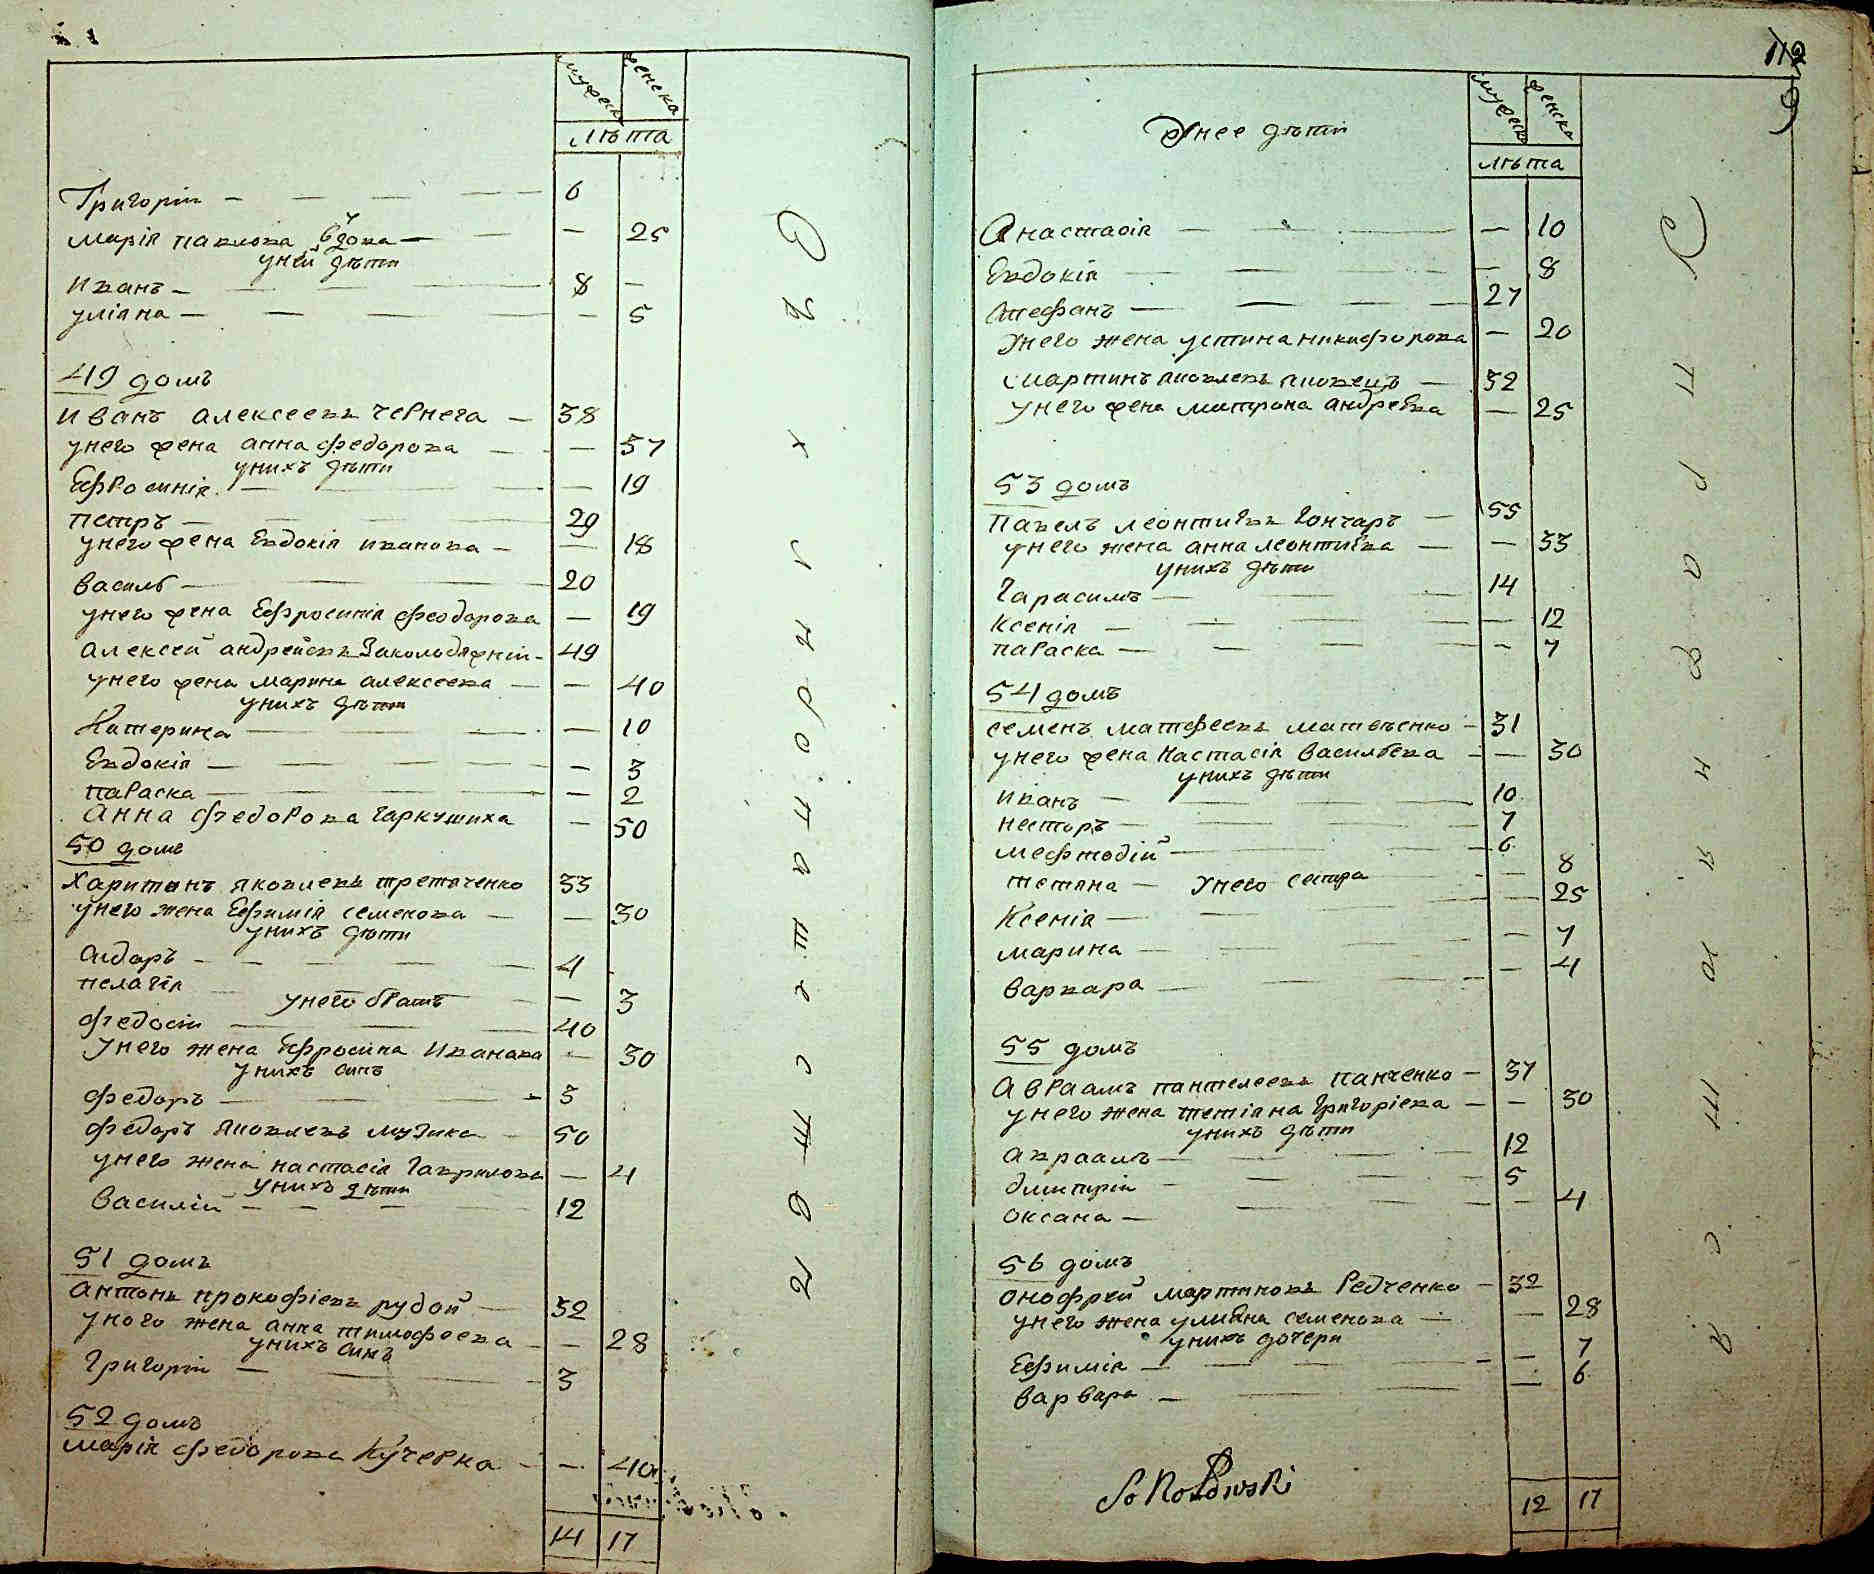 мужеска женска
лѣта
Григорій — 6
марія павлова вдова — — 25
уней дѣти
Иванъ — 8 —
уліяна — — 5
49 домъ
Иванъ алексеевъ Чернега — 38
унего жена анна федорова — — 37
унихъ дѣти
Ефросинія — — 19
петръ — 29
унего жена Евдокія иванова — — 18
василь — 20
унего жена Ефросинія феодорова — 19
алексей андрейевъ Заколодяжній — 49
унего жена марина алексеева — — 40
унихъ дѣти
Катерина — — 10
Евдокія — — 3
параска — — 2
анна федорова Гаркушиха — 50
50 домъ
харитонъ яковлевъ третяченко 33
унего жена Ефимія семенова — — 30
унихъ дѣти
сидоръ — 4
пелагія — 3
унего братъ
федосій — 40
Унего жена Ефросина Иванова — 30
Унихъ синъ
федоръ — 3
федоръ яковлевъ музика — 50
унего жена настасія Гаврилова — 4
унихъ дѣти
василій — 12
51 домъ
антонъ прокофіевъ рудой — 32
унего жена анна тимофеева — — 28
унихъ синъ
Григорій — 3
52 домъ
марія федорова Кучерка — — 40
14 17
Р у х л я д о п а ш е с т в а
112
мужеска женска
лѣта
Унее дѣти
Анастасія — — 10
Евдокія — — 8
стефанъ — 27
Унего жена устина никифорова — 20
мартинъ яковлевъ яковецъ — 32
унего жена матрона андреева — 25
53 домъ
павелъ леонтиевъ Гончаръ — 35
унего жена анна леонтиева — — 33
унихъ дѣти
Гарасимъ — 14
ксенія — — 12
параска — — 7
54 домъ
семенъ матфеевъ матвѣенко — 31
унего жена настасія васильева — — 30
унихъ дѣти
иванъ — 10
несторъ — 7
мефтодій — 6
тетяна — — 8
Унего сестра
Ксенія — — 25
марина — — 7
варвара — — 4
55 домъ
авраамъ пантелеевъ панченко — 37
унего жена тетіяна Григоріева — — 30
унихъ дѣти
авраамъ — 12
дмитрій — 5
оксана — — 4
56 домъ
онофрей мартиновъ Редченко — 32
унего жена улияна семенова — — 28
унихъ дочери
Ефимія — — 7
варвара — — 6
Sokołowski
12 17